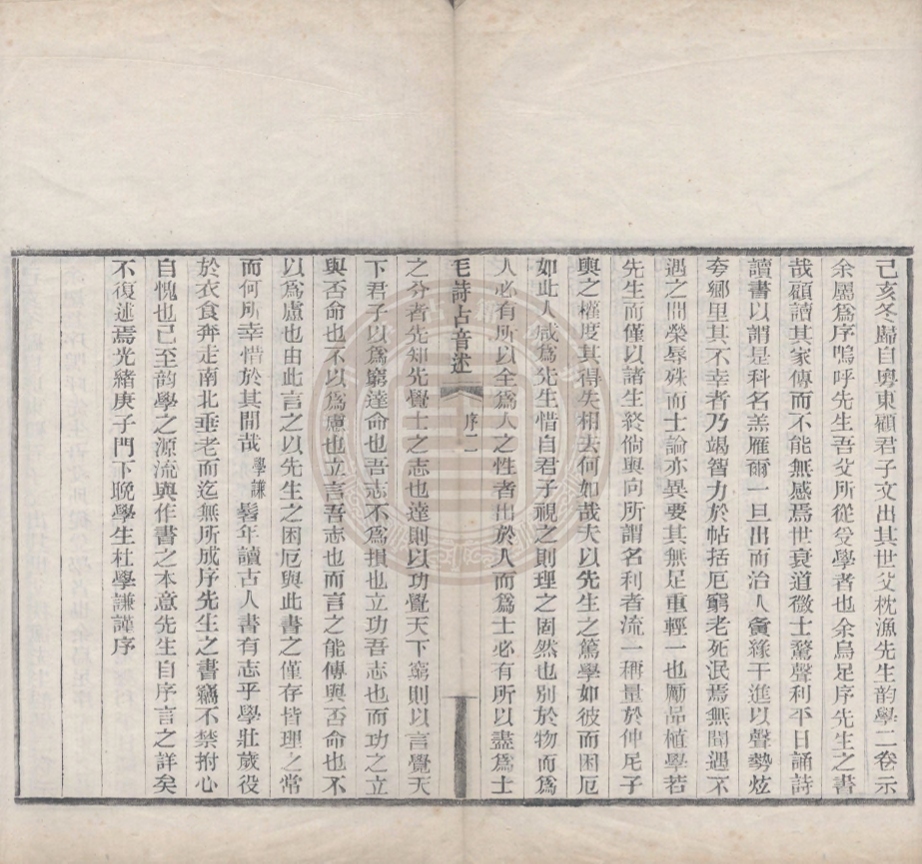 己亥冬歸自粵東顧君子文出其世父枕漁先生韵學二卷示
余屬爲序嗚呼先生吾父所從受學者也余烏足序先生之書
哉顧讀其家傳而不能無感焉世衰道微士騖聲利平日誦詩
讀書以謂是科名羔雁爾一旦出而治人夤緣干進以聲勢炫
夸鄉里其不幸者乃竭智力於帖括厄窮老死泯焉無聞遇不
遇之間榮辱殊而士論亦異要其無足重輕一也勵品植學若
先生而僅以諸生終倘與向所謂名利者流一稱量於仲尼子
輿之權度其得失相去何如哉夫以先生之篤學如彼而困厄
如此人咸爲先生惜自君子視之則理之固然也別於物而爲
人必有所以全爲人之性者出於人而爲士必有所以盡爲士
毛詩古音述 序 二
之分者先知先覺士之志也達則以功覺天下窮則以言覺天
下君子以爲窮達命也吾志不爲損也立功吾志也而功之立
與否命也不以爲慮也立言吾志也而言之能傳與否命也不
以爲慮也由此言之以先生之困厄與此書之僅存皆理之常
而何所幸惜於其間哉學謙髫年讀古人書有志乎學壯歲役
於衣食奔走南北垂老而迄無所成序先生之書竊不禁拊心
自愧也已至韵學之源流與作書之本意先生自序言之詳矣
不復述焉光緒庚子門下晚學生杜學謙謹序